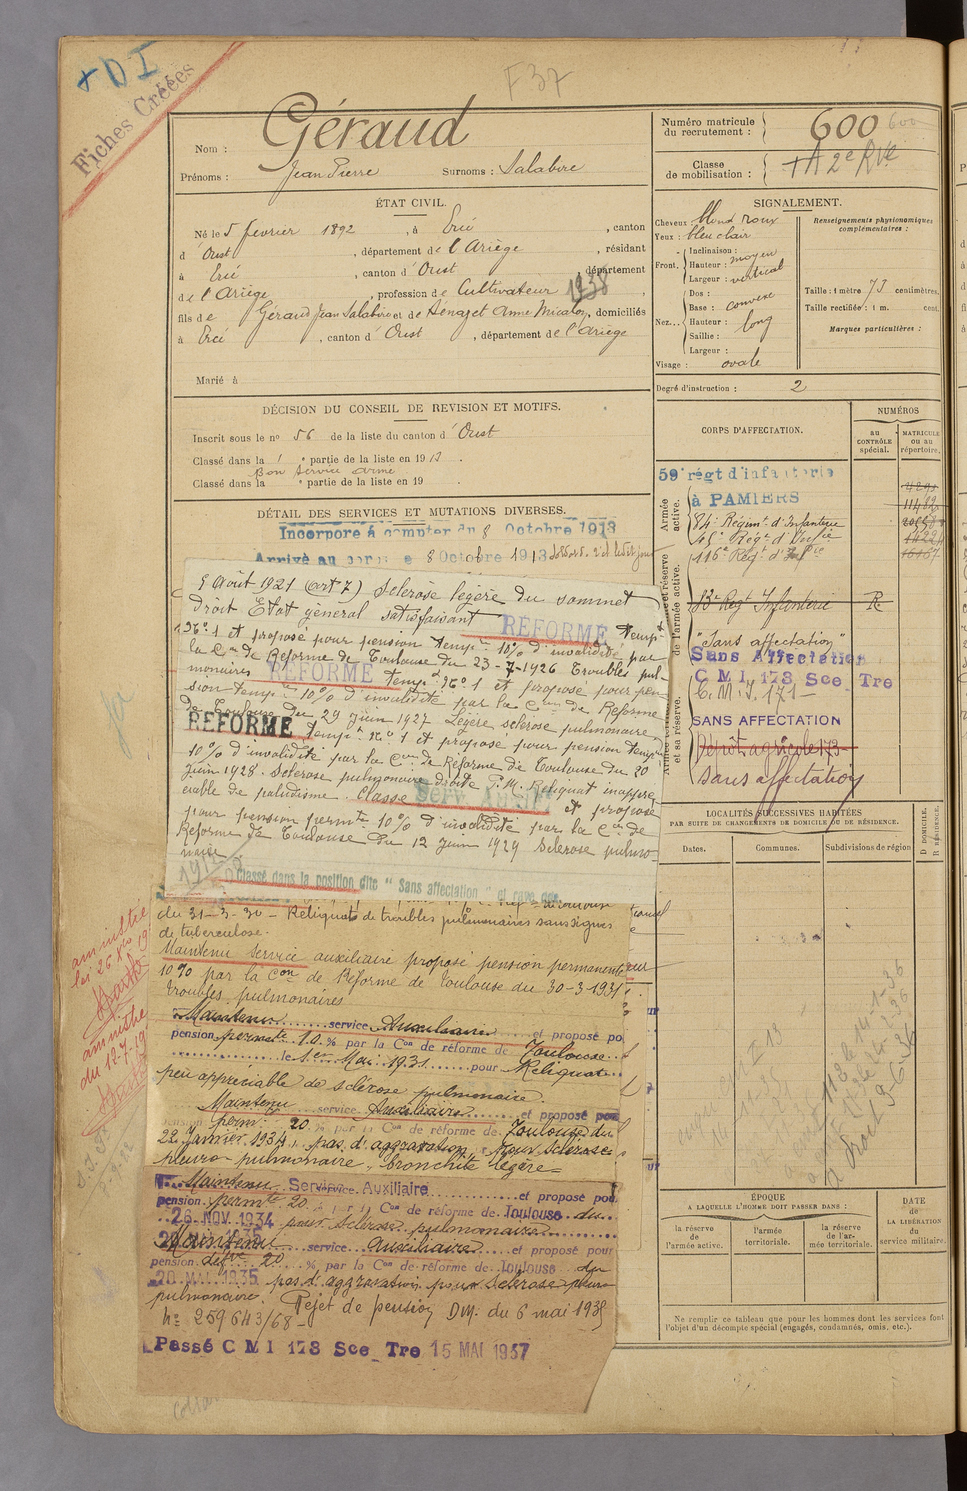 + D I
Fiches Créées
F 37
Nom : Géraud
Prénoms : Jean Pierre Surnoms : Salabire
ÉTAT CIVIL.
Né le 5 février 1892, à Ercé, canton
d'Oust, département de l'Ariège, résidant
à Ercé, canton d'Oust, département
de l'Ariège, profession de Cultivateur 1938
fils de Géraud Jean Salabire et de Dénaget Anne Micalou, domiciliés
à Ercé, canton d'Oust, département de l'Ariège
Marié à
DÉCISION DU CONSEIL DE REVISION ET MOTIFS.
Inscrit sous le no 56 de la liste du canton d'Oust
Classé dans la 1e partie de la liste en 1913.
Bon service armé
Classé dans la e partie de la liste en 19 .
DÉTAIL DES SERVICES ET MUTATIONS DIVERSES.
Incorporé à compter du 8 Octobre 1913
Arrivé au corps le 8 Octobre 1913 soldat de 2e cl. le dit jour
Août 1921 (art 7) Sclérose légère du sommet
droit Etat général satisfaisant RÉFORMÉ Temp
no 1 et proposé pour pension tempre 10% d'invalidité par
la Con de Réforme de Toulouse du 23-7-1926 Troubles pul-
monaires RÉFORMÉ Tempre no 1 et proposé pour pen-
sion tempre 10% d'invalidité par la Con de Réforme
de Toulouse du 29 juin 1927 Légère sclérose pulmonaire
RÉFORMÉ tempre no 1 et proposé pour pension tempre
10% d'invalidité par la Con de Réforme de Toulouse du 20
juin 1928. Sclérose pulmonaire droite P.M. Reliquat inappré-
ciable de paludisme. Classé Serv. Auxil. et proposé
pour pension permte 10% d'invalidité par la Con de
Réforme de Toulouse du 12 juin 1929 Sclérose pulmo-
naire
Classé dans la position dite "Sans affectation" et rayé des
du 31-3-30 - Reliquats de troubles pulmonaires sans signes
de tuberculose.
Maintenu service auxiliaire proposé pension permanente
10% par la Con de Réforme de Toulouse du 30-3-1931
troubles pulmonaires
Maintenu service Auxiliaire et proposé po
pension permte 10 % par la Con de réforme de Toulouse
le 1er Mai 1931 pour Reliquat
peu appréciable de sclérose pulmonaire.
Maintenu service Auxiliaire et proposé pour
pension perm 20 % par la Con de réforme de Toulouse du
22 Janvier 1934, pas d'aggravation, pour sclérose
pleuro-pulmonaire, bronchite légère =
Maintenu Service Auxiliaire et proposé pou
pension permte 20 % par la Con de réforme de Toulouse du
26 NOV 1934 pour Sclérose pulmonaire
Maintenu service auxiliaire et proposé pour
pension déftve 20 % par la Con de réforme de Toulouse du
20 MAI 1935 pas d'aggravation pour Sclérose pleuro
pulmonaire. Rejet de pension DM. du 6 mai 1935
No 259643/68-
Passé C M I 173 Sce Tre 15 MAI 1937
amnistié
loi 26 Xbre 19
amnistie
du 12-7-19
Numéro matricule
du recrutement : 600
Classe
de mobilisation : + A 2e Rve
SIGNALEMENT.
Cheveux blond roux
Yeux : bleu clair
Front. Inclinaison :
Hauteur : moyen
Largeur : vertical
Nez... Dos :
Base : convexe
Hauteur : long
Saillie :
Largeur :
Visage : ovale
Renseignements physionomiques
complémentaires :
Taille : 1 mètre 73 centimètres.
Taille rectifiée : 1 m. cent.
Marques particulières :
Degré d'instruction : 2
CORPS D'AFFECTATION.
NUMÉROS
au
CONTRÔLE
spécial.
MATRICULE
ou au
répertoire.
Armée
active.
59e régt d'infanterie
à PAMIERS
84e Régimt d'Infanterie
116e Régt d'Infie
83e Regt Infanterie R.
"Sans affectation"
Sans Affectation
C M I 173 Sce Tre
C.M.I. 171-
SANS AFFECTATION
Dépôt agricole 173
Sans affectation
LOCALITÉS SUCCESSIVES HABITÉES
PAR SUITE DE CHANGEMENTS DE DOMICILE OU DE RÉSIDENCE.
Dates.
Communes.
Subdivisions de région
D DOMICILE.
R RÉSIDENCE.
ÉPOQUE
A LAQUELLE L'HOMME DOIT PASSER DANS :
la réserve
de
l'armée active.
l'armée
territoriale.
la réserve
de l'ar-
mée territoriale.
DATE
de
LA LIBÉRATION
du
service militaire.
Ne remplir ce tableau que pour les hommes dont les services font
l'objet d'un décompte spécial (engagés, condamnés, omis, etc.).